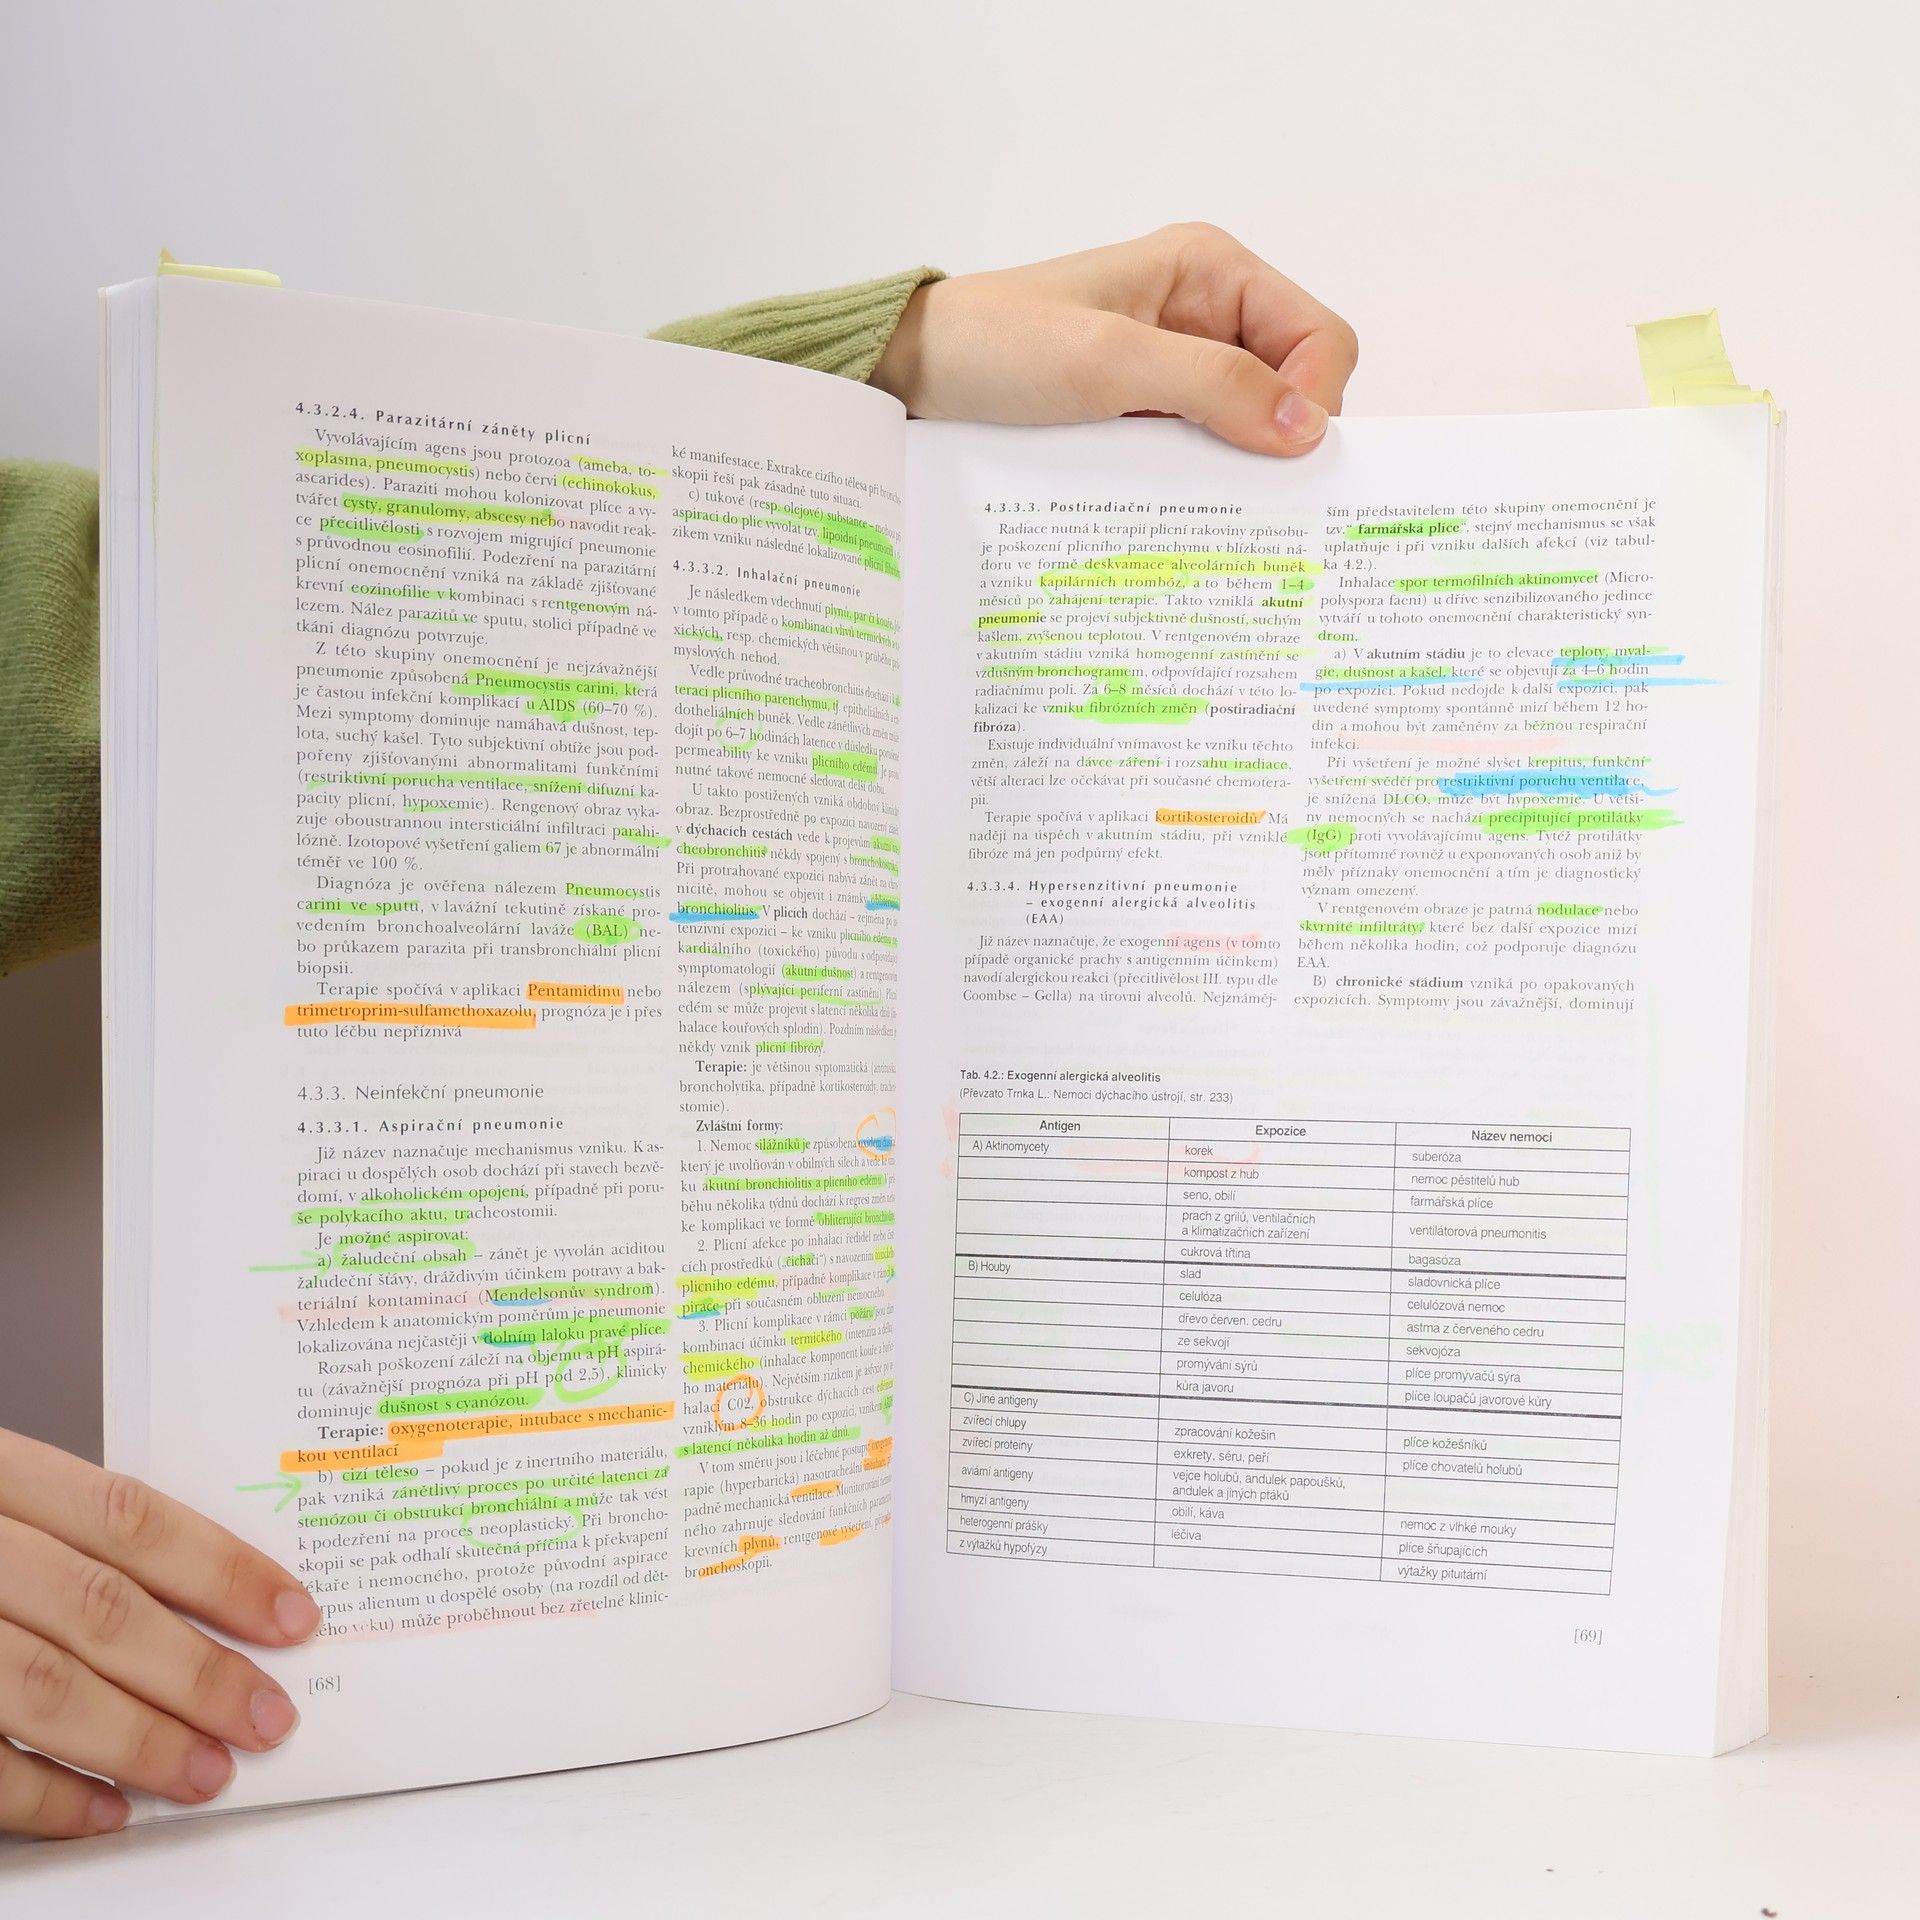 4.3.2.4. Parazitární záněty plicní
Vyvolávajícím agens jsou protozoa (ameba, to-
xoplasma, pneumocystis) nebo červi (echinokokus,
ascarides). Paraziti mohou kolonizovat plíce a vy-
tvářet cysty, granulomy, abscesy nebo navodit reak-
ce přecitlivělosti s rozvojem migrující pneumonie
s průvodnou eosinofilií. Podezření na parazitární
plicní onemocnění vzniká na základě zjišťované
krevní eozinofilie v kombinaci s rentgenovým ná-
lezem. Nález parazitů ve sputu, stolici případně ve
tkáni diagnózu potvrzuje.
Z této skupiny onemocnění je nejzávažnější
pneumonie způsobená Pneumocystis carini, která
je častou infekční komplikací u AIDS (60–70 %).
Mezi symptomy dominuje namáhavá dušnost, tep-
lota, suchý kašel. Tyto subjektivní obtíže jsou pod-
pořeny zjišťovanými abnormalitami funkčními
(restriktivní porucha ventilace, snížení difuzní ka-
pacity plicní, hypoxemie). Rengenový obraz vyka-
zuje oboustrannou intersticiální infiltraci parahi-
lózně. Izotopové vyšetření galiem 67 je abnormální
téměř ve 100 %.
Diagnóza je ověřena nálezem Pneumocystis
carini ve sputu, v lavážní tekutině získané pro-
vedením bronchoalveolární laváže (BAL) ne-
bo průkazem parazita při transbronchiální plicní
biopsii.
Terapie spočívá v aplikaci Pentamidinu nebo
trimetroprim-sulfamethoxazolu, prognóza je i přes
tuto léčbu nepříznivá
4.3.3. Neinfekční pneumonie
4.3.3.1. Aspirační pneumonie
Již název naznačuje mechanismus vzniku. K as-
piraci u dospělých osob dochází při stavech bezvě-
domí, v alkoholickém opojení, případně při poru-
še polykacího aktu, tracheostomii.
Je možné aspirovat:
a) žaludeční obsah – zánět je vyvolán aciditou
žaludeční šťávy, dráždivým účinkem potravy a bak-
teriální kontaminací (Mendelsonův syndrom).
Vzhledem k anatomickým poměrům je pneumonie
lokalizována nejčastěji v dolním laloku pravé plíce.
Rozsah poškození záleží na objemu a pH aspirá-
tu (závažnější prognóza při pH pod 2,5), klinicky
dominuje dušnost s cyanózou.
Terapie: oxygenoterapie, intubace s mechanic-
kou ventilací
b) cizí těleso – pokud je z inertního materiálu,
pak vzniká zánětlivý proces po určité latenci za
stenózou či obstrukcí bronchiální a může tak vést
k podezření na proces neoplastický. Při broncho-
skopii se pak odhalí skutečná příčina k překvapení
lékaře i nemocného, protože původní aspirace
rpus alienum u dospělé osoby (na rozdíl od dět-
ého veku) může proběhnout bez zřetelné klinic-
[68]
ké manifestace. Extrakce cizího tělesa při broncho-
skopii řeší pak zásadně tuto situaci.
c) tukové (resp. olejové) substance – mohou při
aspiraci do plic vyvolat tzv. lipoidní pneumonii
zikem vzniku následné lokalizované plicní
4.3.3.2. Inhalační pneumonie
Je následkem vdechnutí plynů, par či kouře,
v tomto případě o kombinaci vlivů termických a
xických, resp. chemických většinou v průběhu
myslových nehod.
Vedle průvodné tracheobronchitis dochází
teraci plicního parenchymu, tj. epitheliálních a
dotheliálních buněk. Vedle zánětlivých změn může
dojít po 6–7 hodinách latence v důsledku
permeability ke vzniku plicního edému. Je
nutné takové nemocné sledovat delší dobu.
U takto postižených vzniká obdobný
obraz. Bezprostředně po expozici navozený
v dýchacích cestách vede k projevům
cheobronchitis někdy spojený s
Při protrahované expozici nabývá zánět na
nicitě, mohou se objevit i známky
bronchiolitis. V plicích dochází – zejména po
tenzivní expozici – ke vzniku plicního edému
kardiálního (toxického) původu s
symptomatologií (akutní dušnost) a
nálezem (splývající periferní zastínění).
edém se může projevit s latencí několika
halace kouřových splodin). Pozdním následkem
někdy vznik plicní fibrózy.
Terapie: je většinou syptomatická
broncholytika, případně kortikosteroidy,
stomie).
Zvláštní formy:
1. Nemoc silážníků je způsobena
který je uvolňován v obilných silech a vede ke
ku akutní bronchiolitis a plicního edému.
běhu několika týdnů dochází k regresi změn
ke komplikaci ve formě obliterující
2. Plicní afekce po inhalaci ředidel nebo
cích prostředků („čichači“) s navozením
plicního edému, případně komplikace v rámci
pirace při současném obluzení nemocného
3. Plicní komplikace v rámci požáru jsou
kombinací účinku termického (intenzita a délka
chemického (inhalace komponent kouře a
ho materiálu). Největším rizikem je asfyxie
halací C02, obstrukce dýchacích cest
vzniklým 8–36 hodin po expozici,
s latencí několika hodin až dnů.
V tom směru jsou i léčebné postupy:
rapie (hyperbarická) nasotracheální
padně mechanická ventilace. Monitorování
ného zahrnuje sledování funkčních
krevních plynů, rentgenové vyšetření,
bronchoskopii.
4.3.3.3. Postiradiační pneumonie
Radiace nutná k terapii plicní rakoviny způsobu-
je poškození plicního parenchymu v blízkosti ná-
doru ve formě deskvamace alveolárních buněk
a vzniku kapilárních trombóz, a to během 1–4
měsíců po zahájení terapie. Takto vzniklá akutní
pneumonie se projeví subjektivně dušností, suchým
kašlem, zvýšenou teplotou. V rentgenovém obraze
v akutním stádiu vzniká homogenní zastínění se
vzdušným bronchogramem, odpovídající rozsahem
radiačnímu poli. Za 6–8 měsíců dochází v této lo-
kalizaci ke vzniku fibrózních změn (postiradiační
fibróza).
Existuje individuální vnímavost ke vzniku těchto
změn, záleží na dávce záření i rozsahu iradiace,
větší alteraci lze očekávat při současné chemotera-
pii.
Terapie spočívá v aplikaci kortikosteroidů. Má
naději na úspěch v akutním stádiu, při vzniklé
fibróze má jen podpůrný efekt.
4.3.3.4. Hypersenzitivní pneumonie
– exogenní alergická alveolitis
(EAA)
Již název naznačuje, že exogenní agens (v tomto
případě organické prachy s antigenním účinkem)
navodí alergickou reakci (přecitlivělost III. typu dle
Coombse – Gella) na úrovni alveolů. Nejznáměj-
ším představitelem této skupiny onemocnění je
tzv.“ farmářská plíce“, stejný mechanismus se však
uplatňuje i při vzniku dalších afekcí (viz tabul-
ka 4.2.).
Inhalace spor termofilních aktinomycet (Micro-
polyspora faeni) u dříve senzibilizovaného jedince
vytváří u tohoto onemocnění charakteristický syn-
drom.
a) V akutním stádiu je to elevace teploty, myal-
gie, dušnost a kašel, které se objevují za 4–6 hodin
po expozici. Pokud nedojde k další expozici, pak
uvedené symptomy spontánně mizí během 12 ho-
din a mohou být zaměněny za běžnou respirační
infekci.
Při vyšetření je možné slyšet krepitus, funkční
vyšetření svědčí pro restriktivní poruchu ventilace,
je snížená DLCO, muze být hypoxemie. U větši-
ny nemocných se nachází precipitující protilátky
(IgG) proti vyvolávajícímu agens. Tytéž protilátky
jsou přítomné rovněž u exponovaných osob aniž by
měly příznaky onemocnění a tím je diagnostický
význam omezený.
V rentgenovém obraze je patrná nodulace nebo
skvrnité infiltráty, které bez další expozice mizí
během několika hodin, což podporuje diagnózu
EAA.
B) chronické stádium vzniká po opakovaných
expozicích. Symptomy jsou závažnější, dominují
Tab. 4.2.: Exogenní alergická alveolitis
(Převzato Trnka L.: Nemoci dýchacího ústrojí, str. 233)
Antigen Expozice Název nemoci
A) Aktinomycety korek suberóza
kompost z hub nemoc pěstitelů hub
seno, obilí farmářská plíce
prach z grilů, ventilačních
a klimatizačních zařízení ventilátorová pneumonitis
cukrová třtina bagasóza
B) Houby slad sladovnická plíce
celulóza celulózová nemoc
dřevo červen. cedru astma z červeného cedru
ze sekvojí sekvojóza
promývání sýrů plíce promývačů sýra
kůra javoru plíce loupačů javorové kůry
C) Jiné antigeny
zvířecí chlupy zpracování kožešin plíce kožešníků
zvířecí proteiny exkrety, séru, peří plíce chovatelů holubů
aviární antigeny vejce holubů, andulek papoušků,
andulek a jiných ptáků
hmyzí antigeny obilí, káva nemoc z vlhké mouky
heterogenní prášky léčiva plíce šňupajících
z výtažků hypofýzy výtažky pituitární
[69]